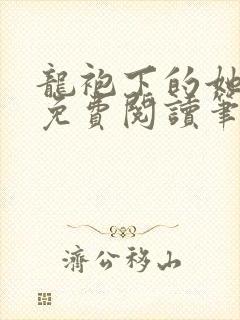 龍袍下的她
免費閱讀筆
濟公移山